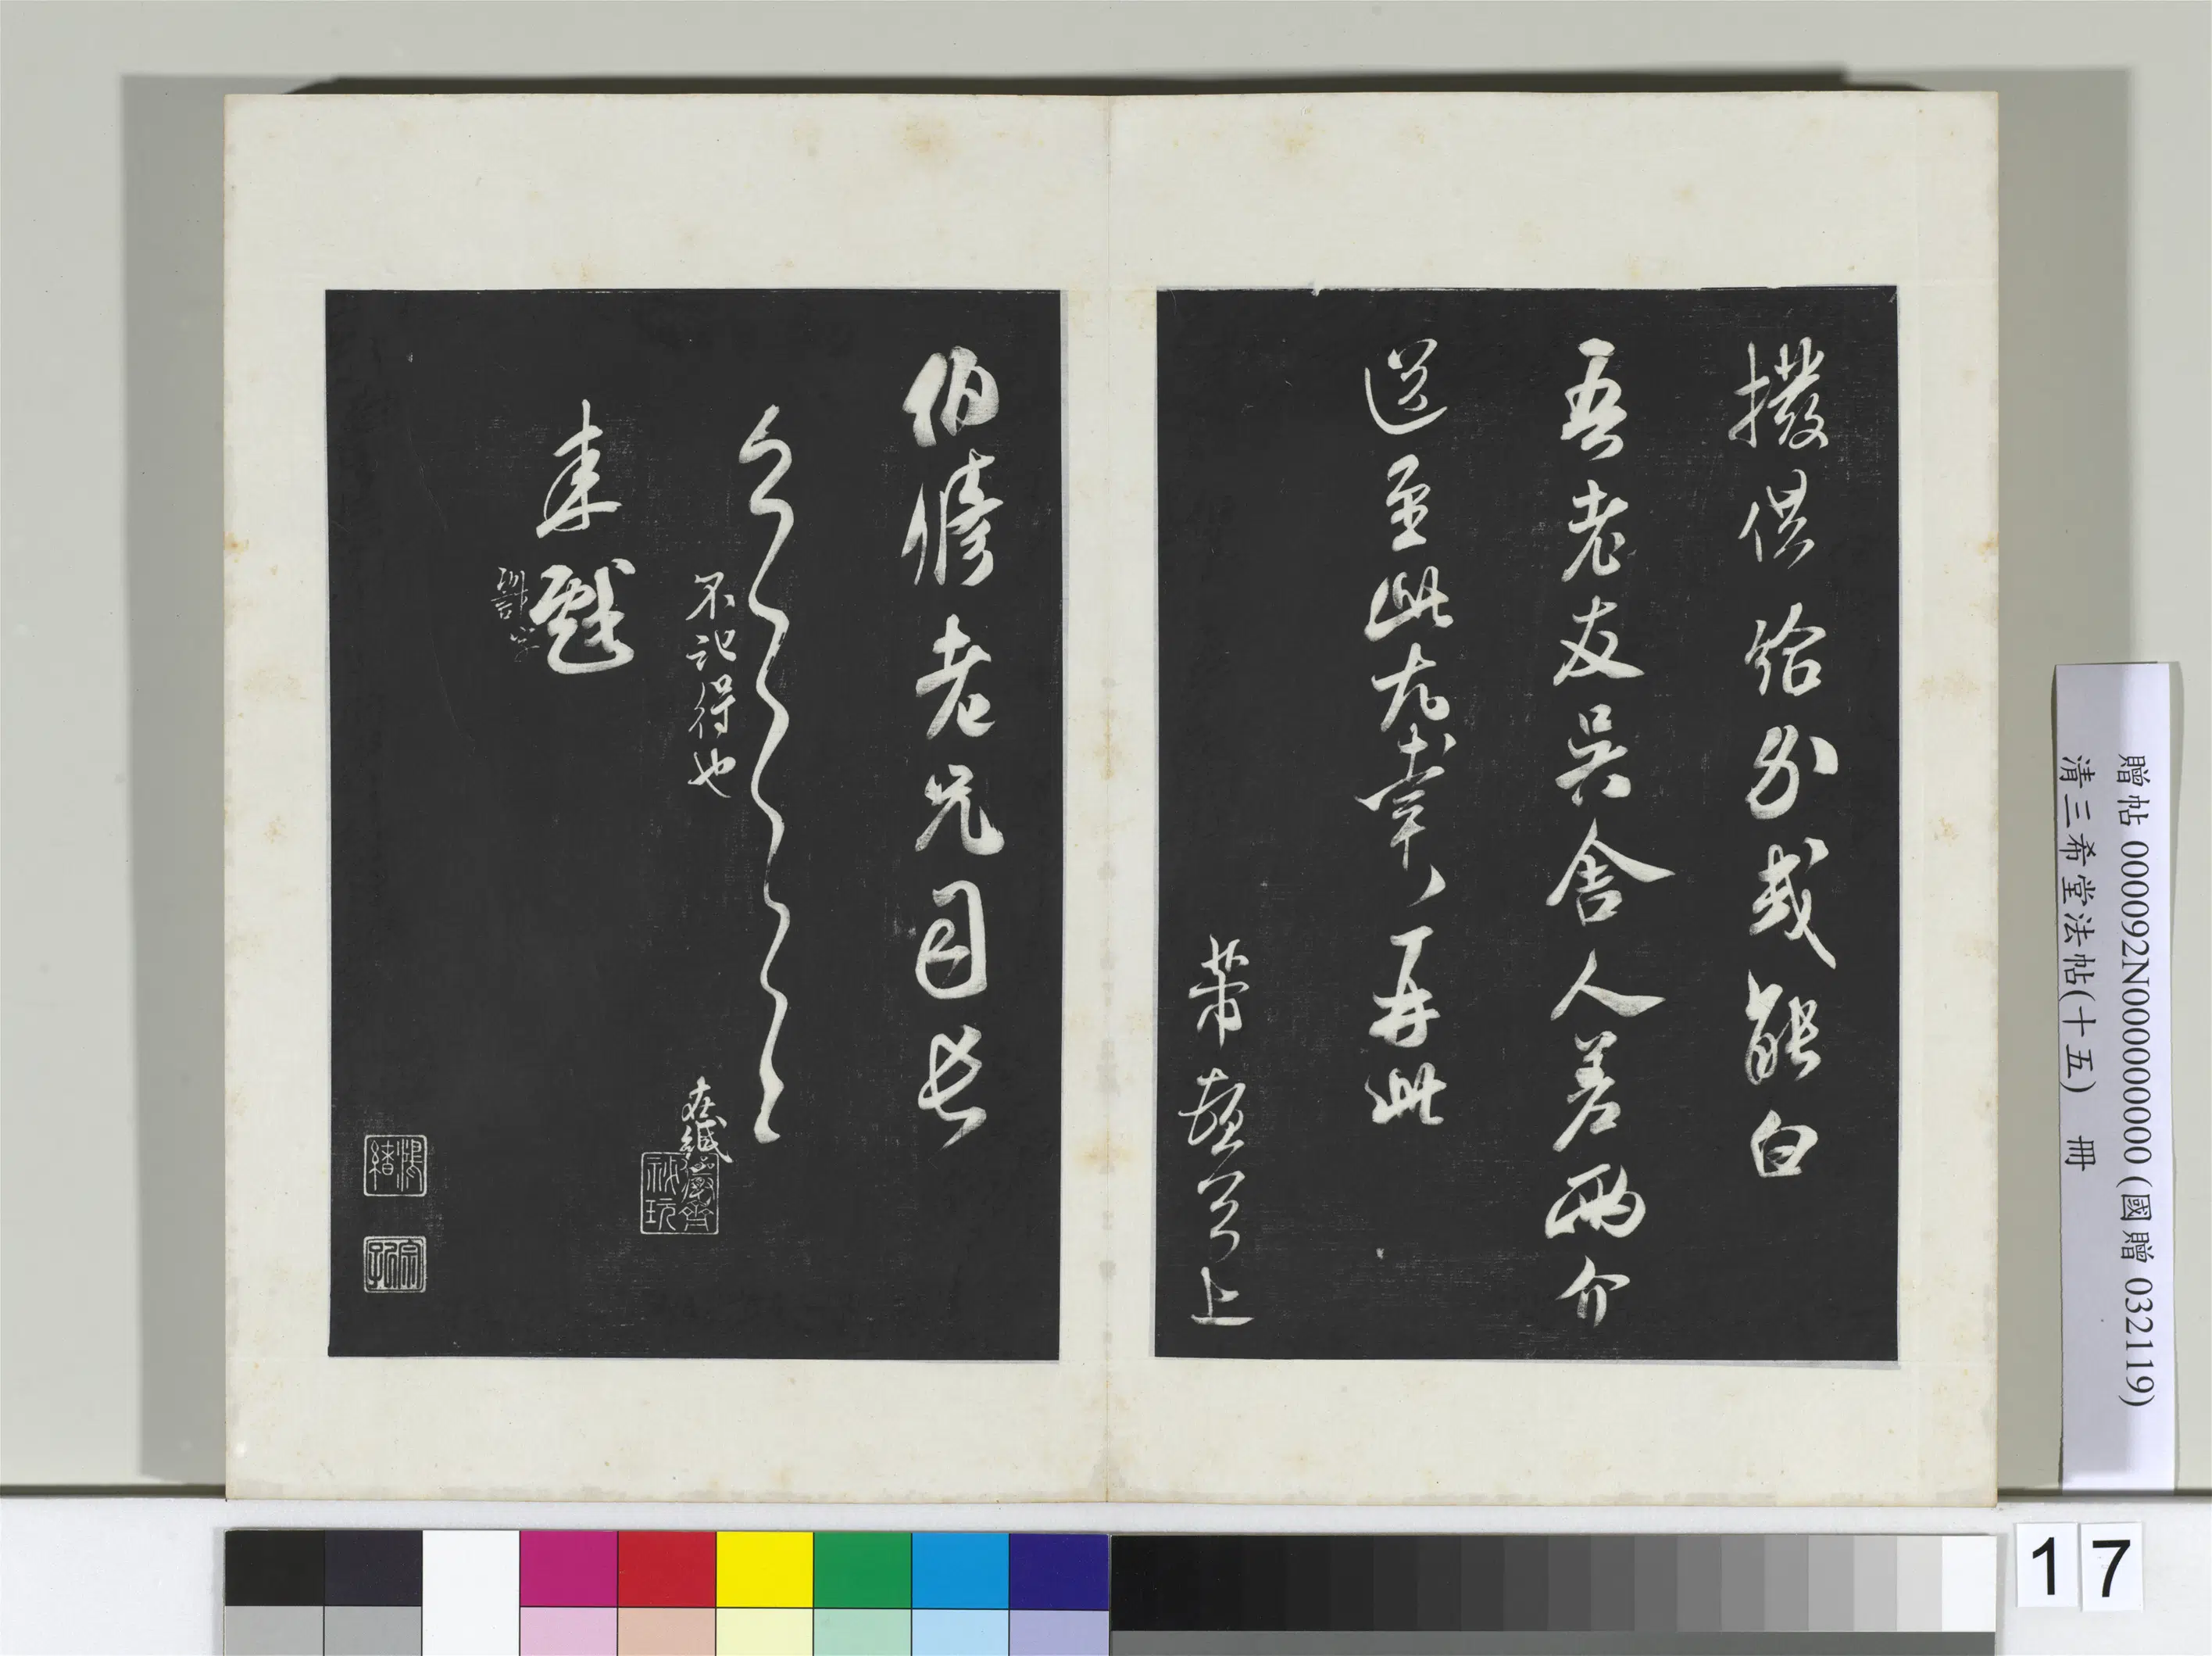 撥供給分或能白
吾老友吳舍人差兩介
送至此尤幸〻再此
芾頓首上
伯脩老兄司長
不記得也
來戲
謝字
祕玩
贈帖 000092N000000000 (國贈 032119)
清三希堂法帖(十五) 冊
17